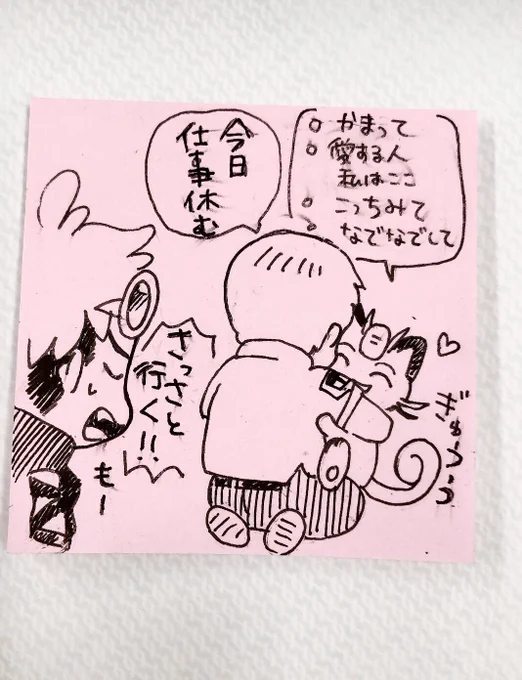 ○ かまって
○ 愛する人
私はここ
○ こっちみて
○ なでなでして
今日
仕事休む
ぎゅうっ
さっさと
行く!!
もー